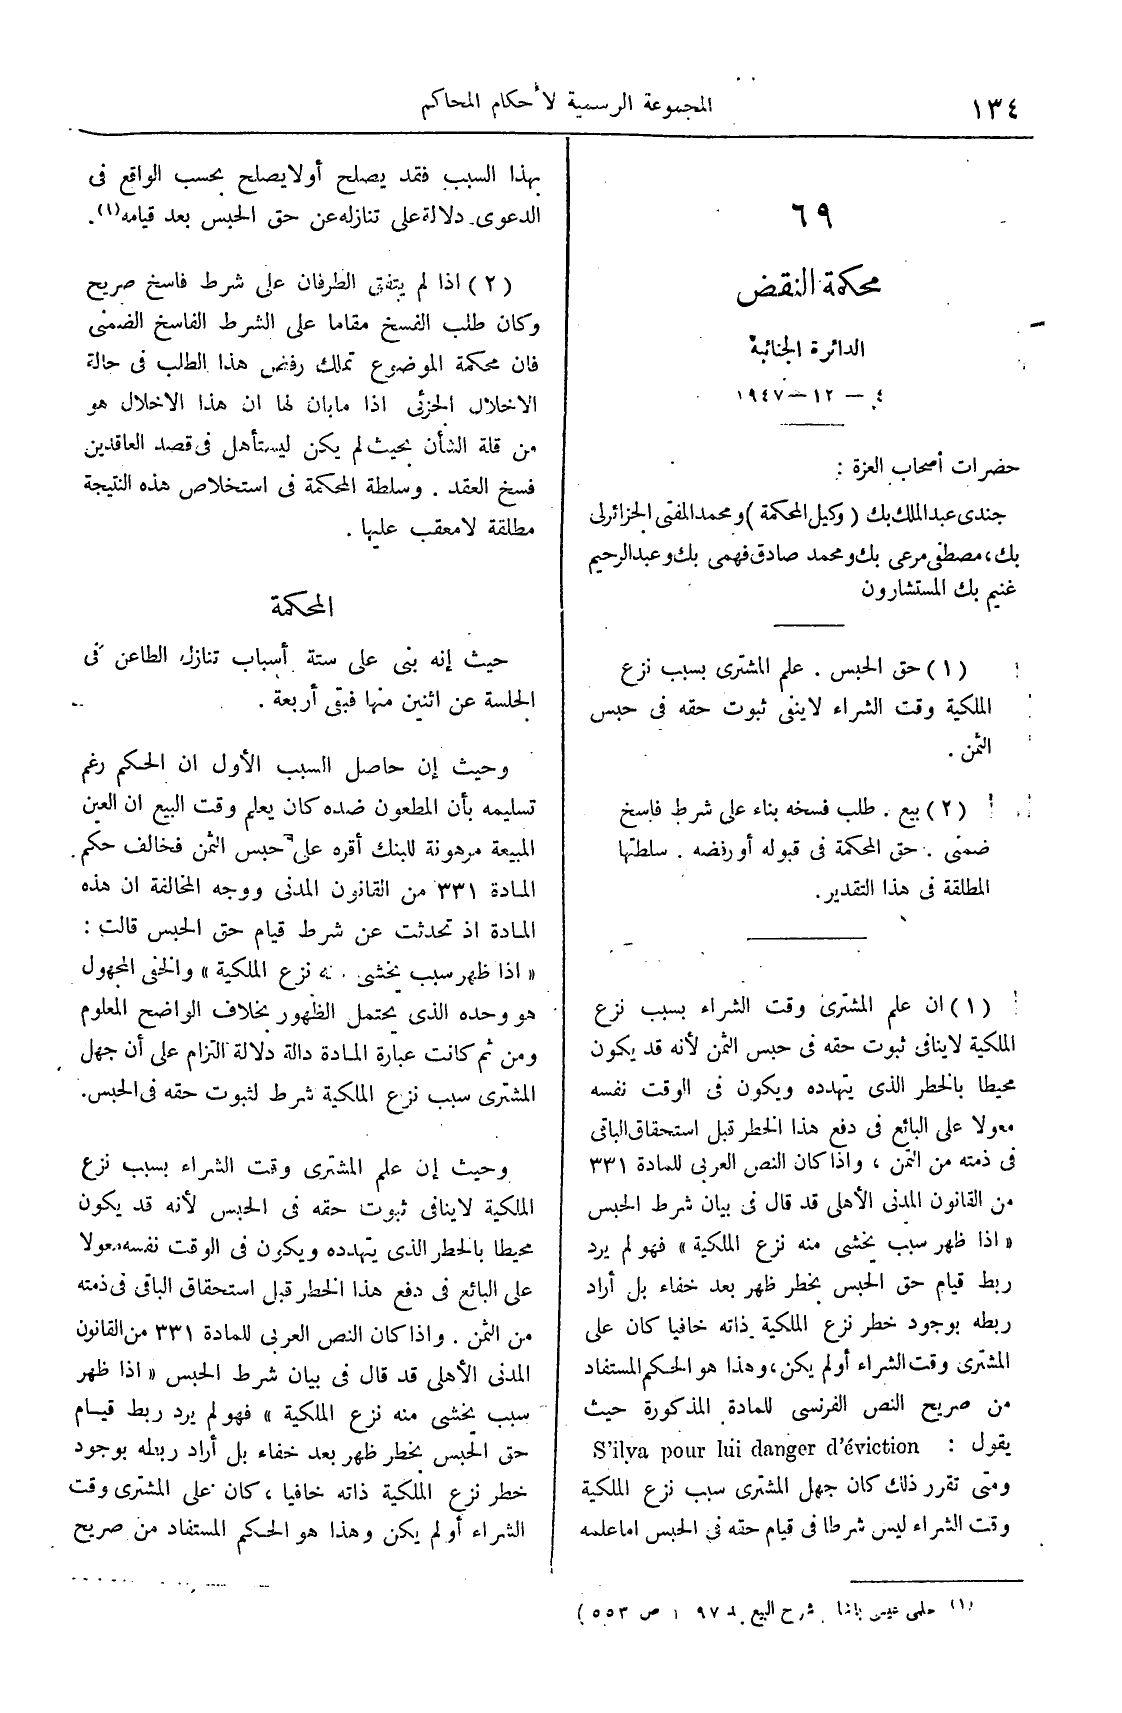 ١٣٤
المجموعة الرسمية لأحكام المحاكم
٦٩
محكمة النقض
الدائرة الجنائية
٤ - ١٢ - ١٩٤٧
حضرات أصحاب العزة :
جندى عبد الملك بك ( وكيل المحكمة ) ومحمد المفتى الجزائرلى
بك ، مصطفى مرعى بك ومحمد صادق فهمى بك وعبد الرحيم
غنيم بك المستشارون
(١) حق الحبس . علم المشترى بسبب نزع
الملكية وقت الشراء لا ينفى ثبوت حقه فى حبس
الثمن .
(٢) بيع . طلب فسخه بناء على شرط فاسخ
ضمنى . حق المحكمة فى قبوله أو رفضه . سلطتها
المطلقة فى هذا التقدير .
(١) ان علم المشترى وقت الشراء بسبب نزع
الملكية لا ينافى ثبوت حقه فى حبس الثمن لأنه قد يكون
محيطا بالخطر الذى يتهدده ويكون فى الوقت نفسه
معولا على البائع فى دفع هذا الخطر قبل استحقاق الباقى
فى ذمته من الثمن ، واذا كان النص العربى للمادة ٣٣١
من القانون المدنى الأهلى قد قال فى بيان شرط الحبس
« اذا ظهر سبب يخشى منه نزع الملكية » فهو لم يرد
ربط قيام حق الحبس بخطر ظهر بعد خفاء بل أراد
ربطه بوجود خطر نزع الملكية ذاته خافيا كان على
المشترى وقت الشراء أو لم يكن ، وهذا هو الحكم المستفاد
من صريح النص الفرنسى للمادة المذكورة حيث
يقول : S'ilya pour lui danger d'éviction
ومتى تقرر ذلك كان جهل المشترى سبب نزع الملكية
وقت الشراء ليس شرطا فى قيام حقه فى الحبس اما علمه
بهذا السبب فقد يصلح أو لا يصلح بحسب الواقع فى
الدعوى دلالة على تنازله عن حق الحبس بعد قيامه(١).
(٢) اذا لم يتفق الطرفان على شرط فاسخ صريح
وكان طلب الفسخ مقاما على الشرط الفاسخ الضمنى
فان محكمة الموضوع تملك رفض هذا الطلب فى حالة
الاخلال الجزئى اذا ما بان لها ان هذا الاخلال هو
من قلة الشأن بحيث لم يكن ليستأهل فى قصد العاقدين
فسخ العقد . وسلطة المحكمة فى استخلاص هذه النتيجة
مطلقة لا معقب عليها .
المحكمة
حيث إنه بنى على ستة أسباب تنازل الطاعن فى
الجلسة عن اثنين منها فبقى أربعة .
وحيث إن حاصل السبب الأول ان الحكم رغم
تسليمه بأن المطعون ضده كان يعلم وقت البيع ان العين
المبيعة مرهونة للبنك أقره على حبس الثمن فخالف حكم
المادة ٣٣١ من القانون المدنى ووجه المخالفة ان هذه
المادة اذ تحدثت عن شرط قيام حق الحبس قالت :
« اذا ظهر سبب يخشى منه نزع الملكية » والخفى المجهول
هو وحده الذى يحتمل الظهور بخلاف الواضح المعلوم
ومن ثم كانت عبارة المادة دالة دلالة التزام على أن جهل
المشترى سبب نزع الملكية شرط لثبوت حقه فى الحبس .
وحيث إن علم المشترى وقت الشراء بسبب نزع
الملكية لا ينافى ثبوت حقه فى الحبس لأنه قد يكون
محيطا بالخطر الذى يتهدده ويكون فى الوقت نفسه معولا
على البائع فى دفع هذا الخطر قبل استحقاق الباقى فى ذمته
من الثمن . واذا كان النص العربى للمادة ٣٣١ من القانون
المدنى الأهلى قد قال فى بيان شرط الحبس « اذا ظهر
سبب يخشى منه نزع الملكية » فهو لم يرد ربط قيام
حق الحبس بخطر ظهر بعد خفاء بل أراد ربطه بوجود
خطر نزع الملكية ذاته خافيا ، كان على المشترى وقت
الشراء أو لم يكن وهذا هو الحكم المستفاد من صريح
(١) حلمى عيسى باشا شرح البيع ص ٥٥٣ )